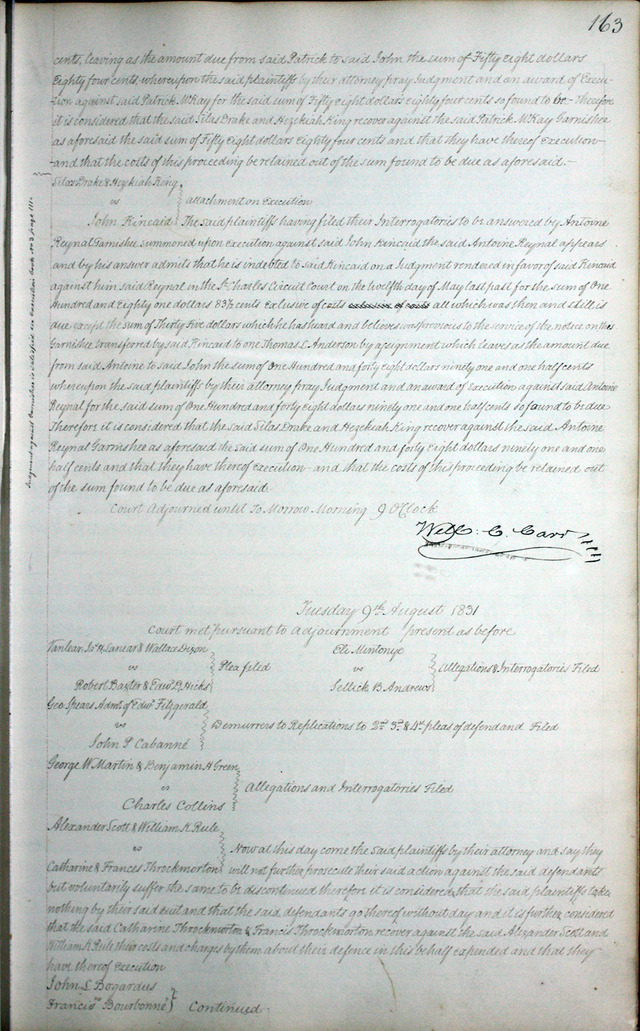 163
cents, leaving as the amount due from said Patrick to said John the sum of Fifty Eight dollars
Eighty four cents, whereupon the said plaintiffs by their attorney pray Judgment and an award of Execu-
tion against said Patrick McKay for the said sum of Fifty eight dollars eighty four cents so found to be – Therefore
it is considered that the said Silas Drake and Hezekiah King recover against the said Patrick McKay Garnishee
as aforesaid the said sum of Fifty Eight dollars Eighty four cents and that they have thereof Execution –
and that the costs of this proceeding be retained out of the sum found to be due as aforesaid. –
Silas Drake & Hezekiah King
vs
attachment on Execution
John Kincaid
The said plaintiffs having filed their Interrogatories to be answered by Antoine
Reynal Garnishee summoned upon Execution against said John Kincaid the said Antoine Reynal appears
and by his answer admits that he is indebted to said Kincaid on a Judgment rendered in favor of said Kincaid
against him said Reynal in the St. Charles Circuit Court on the Twelfth day of May last past for the sum of One
Hundred and Eighty one dollars 83½ cents Exclusive of costs all which was then and still is
due except the sum of Thirty Five dollars which he has heard and believes was previous to the service of the notice on this
Garnishee transferred by said Kincaid to one Thomas L. Anderson by assignment which leaves as the amount due
from said Antoine to said John the sum of One Hundred and forty eight dollars ninety one and one half cents
whereupon the said plaintiff by their attorney pray Judgment and an award of Execution against said Antoine
Reynal for the said sum of One Hundred and forty Eight dollars ninety one and one half cents so found to be due
Therefore it is considered that the said Silas Drake and Hezekiah King recover against the said Antoine
Reynal Garnishee as aforesaid the said sum of One Hundred and forty Eight dollars ninety one and one
half cents and that they have thereof execution – and that the costs of this proceeding be retained out
of the sum found to be due as aforesaid.
Court Adjourned until To Morrow Morning 9 O'Clock
Will: C. Carr
Tuesday 9th August 1831
Court met pursuant to adjournment present as before
& Wallace Dixon
vs
Plea filed
Robert Baxter & Edwd. D. Hicks
Eli Mintonye
vs
Allegations & Interrogatories Filed
Sellick B. Andrews
Geo Spears Admr. of Edwd. Fitzgerald
vs
Demurrers to Replications to 2d. 3d. & 4th pleas of defendand Filed
John P Cabanné
George W Martin & Benjamin H Green
vs
Allegations and Interrogatories Filed
Charles Collins
Alexander Scott & William K Rule
vs
Now at this day come the said plaintiffs by their attorney and say they
Catharine & Frances Throckmorton
will not further prosecute their said action against the said defendants
but voluntarily suffer the same to be discontinued therefore it is considered that the said plaintiffs take
nothing by their said suit and that the said defendants go thereof without day and it is further considered
that the said Catharine Throckmorton & Francis Throckmorton recover against the said Alexander Scott and
William K Rule their costs and charges by them about their defence in this behalf expended and that they
have thereof Execution
John L Bogardus
vs
Francis Bourbonné
Continued